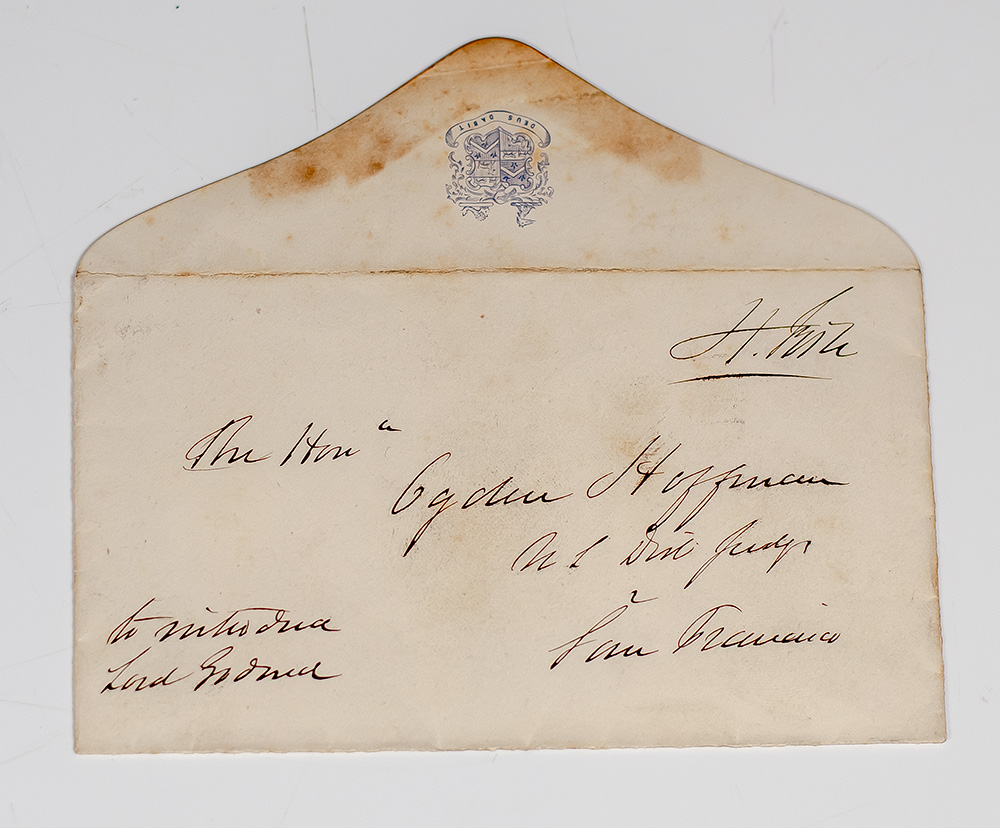 DEUS DABIT
H. Fish
The Hon<sup>le</sup>
Ogden Hoffman
U S Dist Judge
San Francisco
to introduce
Lord